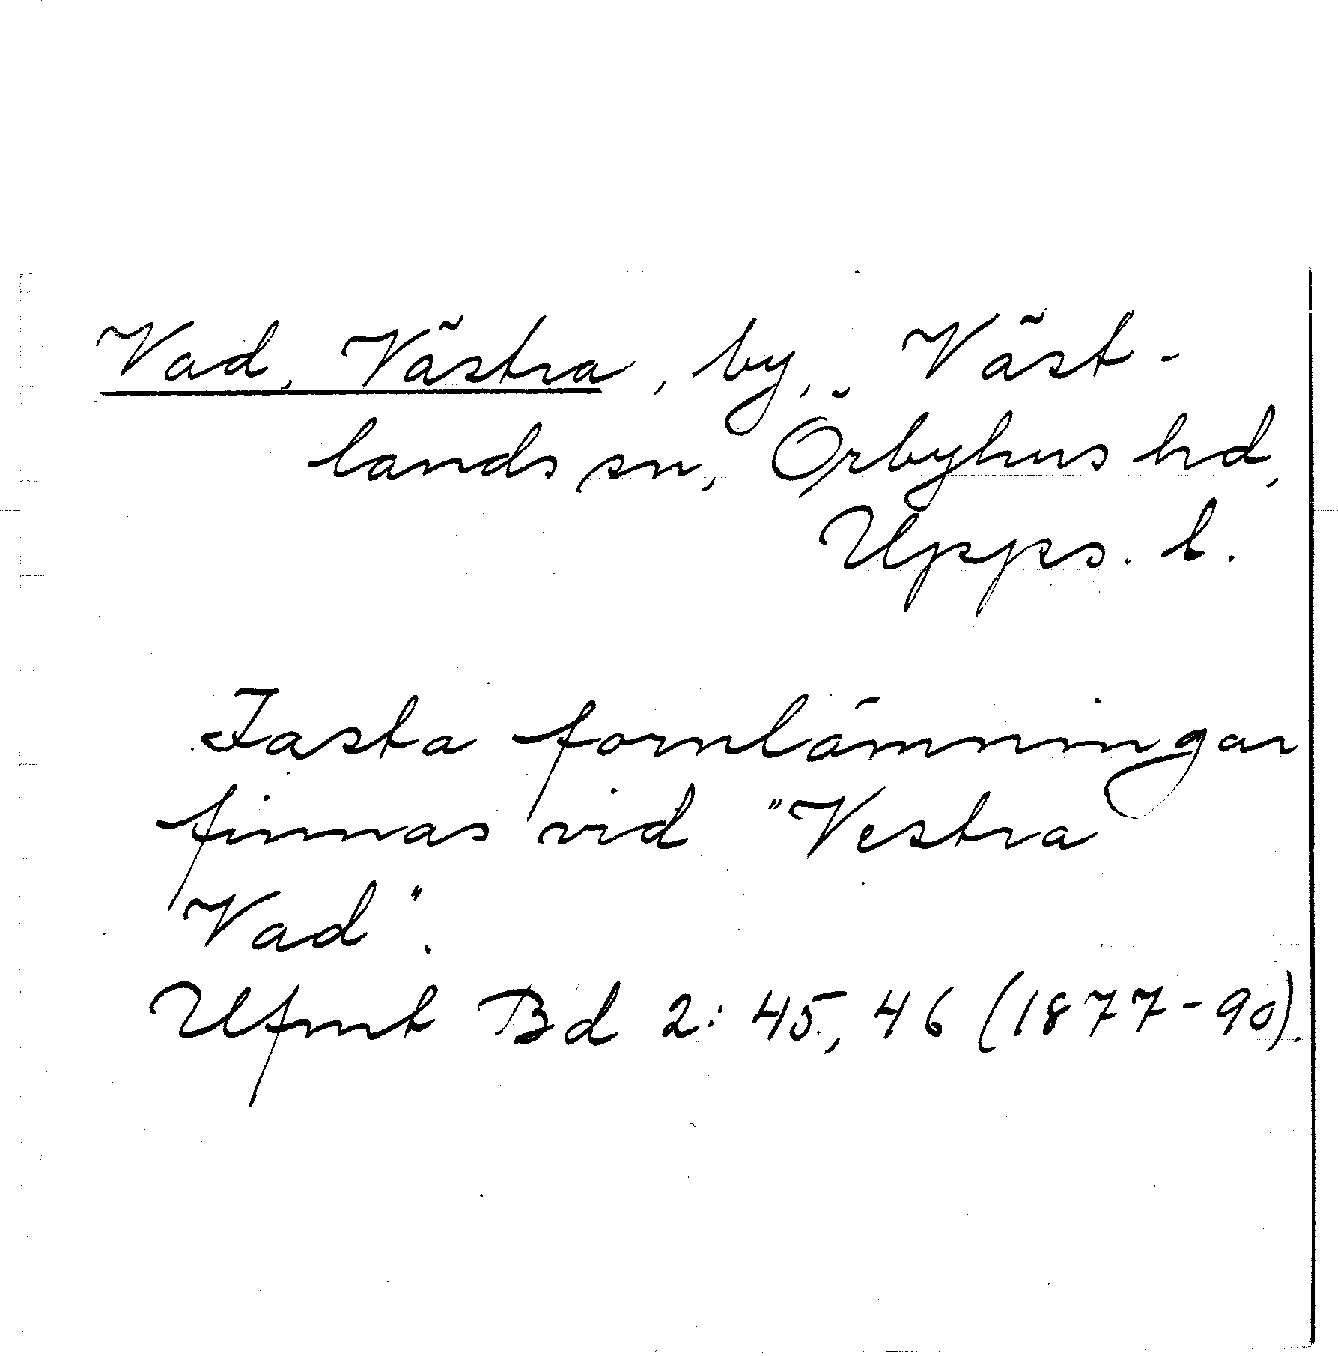 Vad, Västra, by, Väst-
lands sn, Örbyhus hd,
Upps. l.
Fasta fornlämningar
finnas vid "Vestra
Vad".
Ufmt Bd 2: 45, 46 (1877-90).